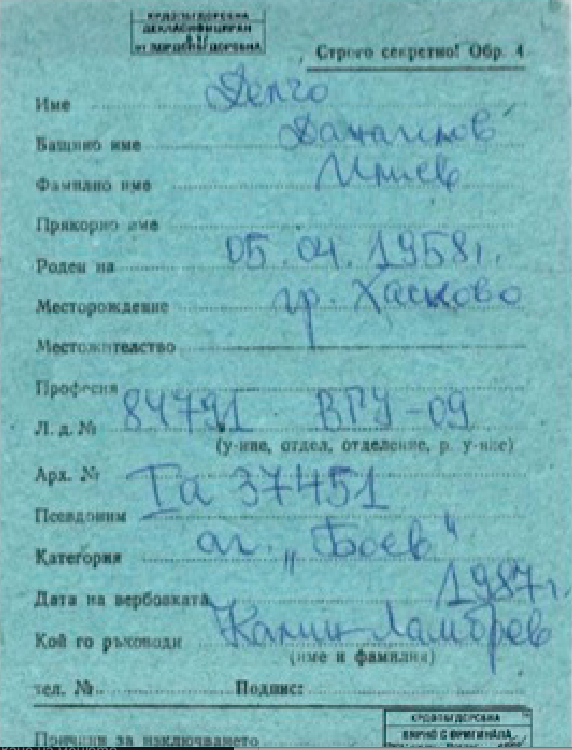 КРДОПБГДСРБНА
ДЕКЛАСИФИЦИРАН
ОТ ЗДРДОПБГДСРБНА
Строго секретно! Обр. 4
Име Делчо
Бащино име
Фамилно име Илиев
Прякорно име
Роден на 05.04.1958г.
Месторождение гр. Хасково
Местожителство
Професия
Л. д. № 84791 ВГУ-09
(у-ние, отдел, отделение, р. у-ние)
Арх. № Iа 37451
Псевдоним
Категория аг. „Боев“
Дата на вербовката 1987г.
Кой го ръководи Калин Ламбрев
(име и фамилия)
тел. № Подпис:
Причини за изключването
КРДОПБГДСРБНА
ВЯРНО С ОРИГИНАЛА